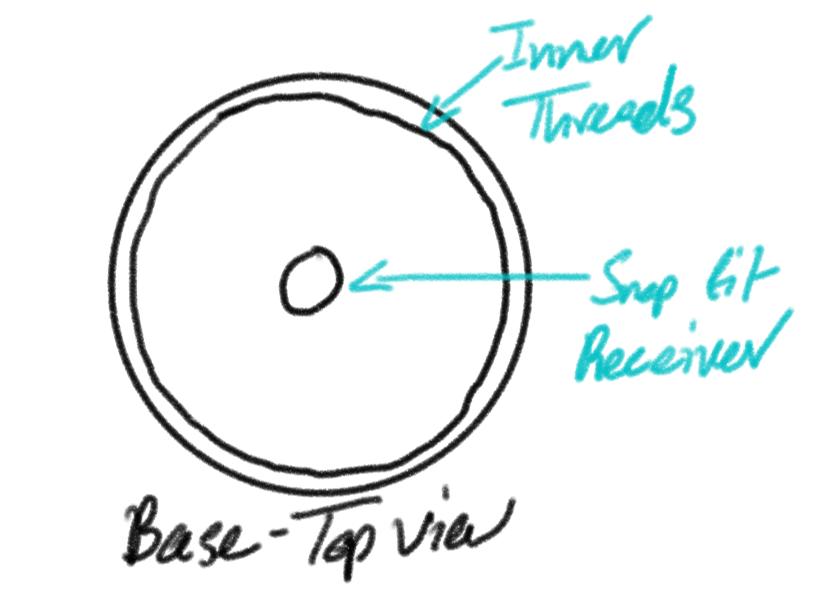 Inner
Threads
Snap fit
Receiver
Base-Top view